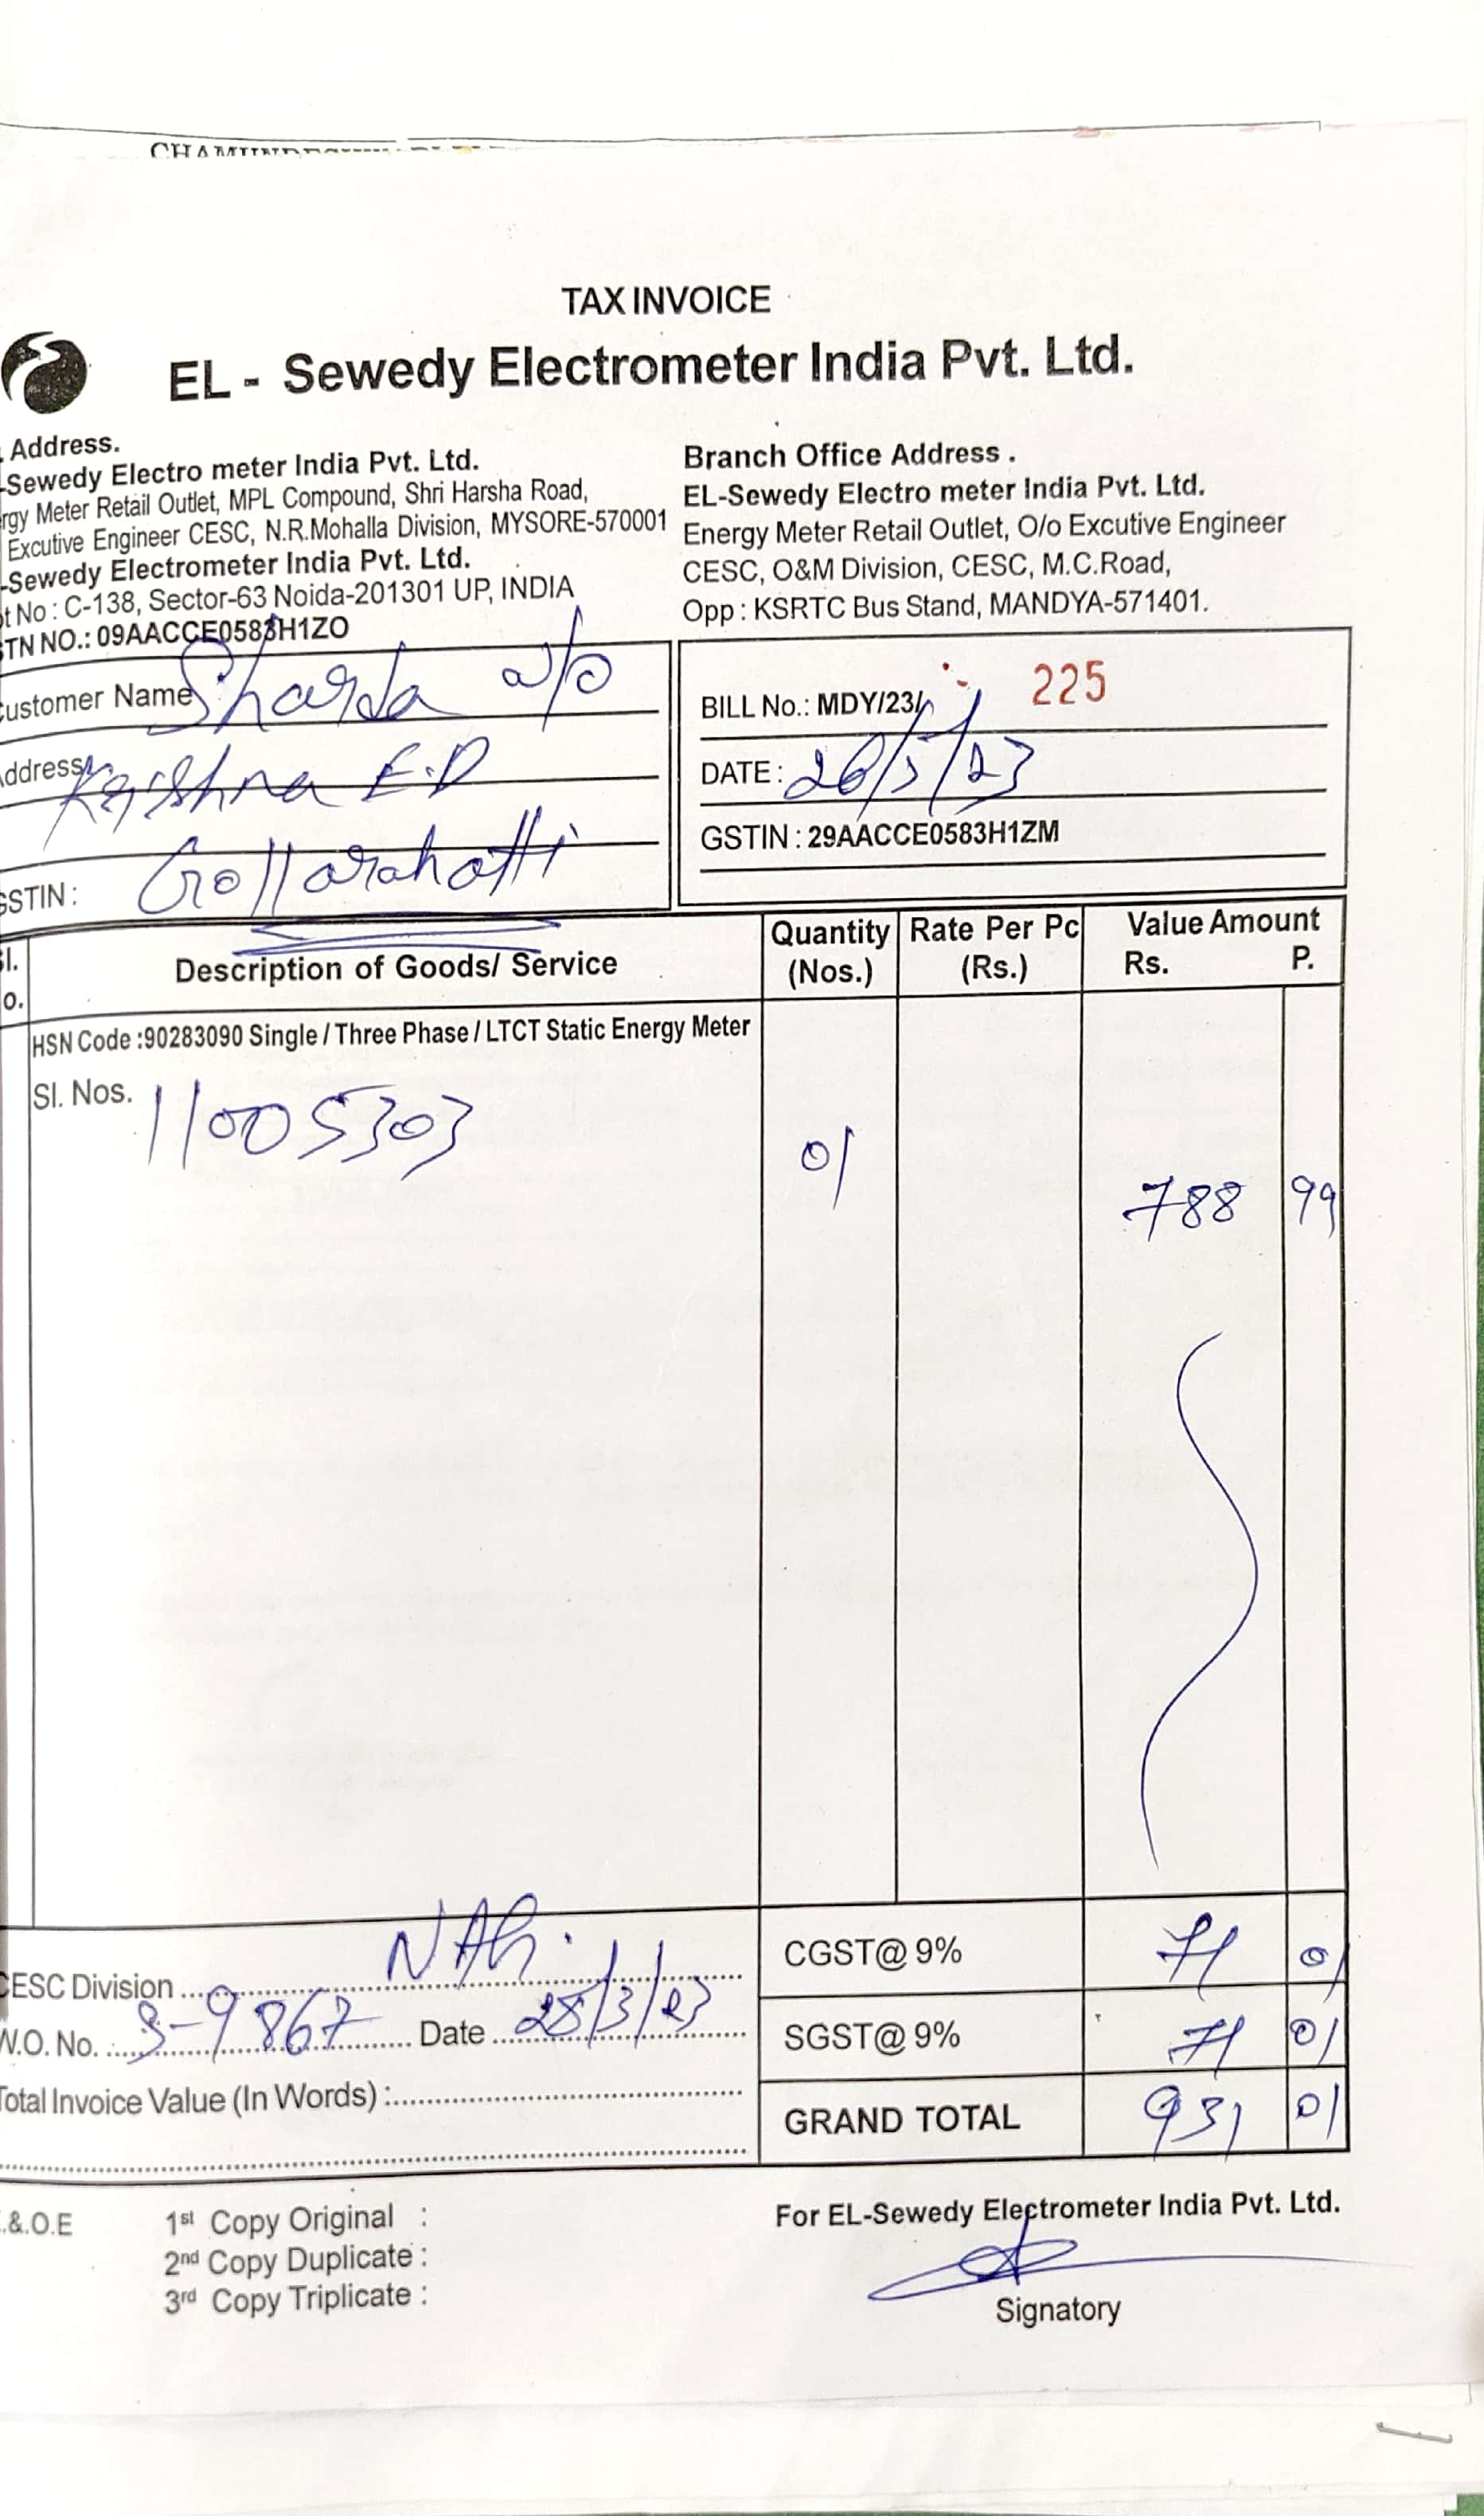 TAX INVOICE
EL - Sewedy Electrometer India Pvt. Ltd.
Address.
-Sewedy Electro meter India Pvt. Ltd.
rgy Meter Retail Outlet, MPL Compound, Shri Harsha Road,
Excutive Engineer CESC, N.R.Mohalla Division, MYSORE-570001
-Sewedy Electrometer India Pvt. Ltd.
t No : C-138, Sector-63 Noida-201301 UP, INDIA
TN NO.: 09AACCE0583H1ZO
Branch Office Address .
EL-Sewedy Electro meter India Pvt. Ltd.
Energy Meter Retail Outlet, O/o Excutive Engineer
CESC, O&M Division, CESC, M.C.Road,
Opp : KSRTC Bus Stand, MANDYA-571401.
ustomer Name Sharda w/o
ddress Krishna E.D
Gollarahatti
GSTIN :
BILL No.: MDY/23/ 225
DATE : 26/5/23
GSTIN : 29AACCE0583H1ZM
Sl. o. Description of Goods/ Service Quantity (Nos.) Rate Per Pc (Rs.) Value Amount Rs. P.
HSN Code :90283090 Single / Three Phase / LTCT Static Energy Meter
Sl. Nos. 11005303 01 788 99
CESC Division NAG.
W.O. No. S-9867 Date 25/3/23
Total Invoice Value (In Words) :
CGST@ 9% 71 01
SGST@ 9% 71 01
GRAND TOTAL 931 01
.&.O.E 1st Copy Original :
2nd Copy Duplicate :
3rd Copy Triplicate :
For EL-Sewedy Electrometer India Pvt. Ltd.
Signatory